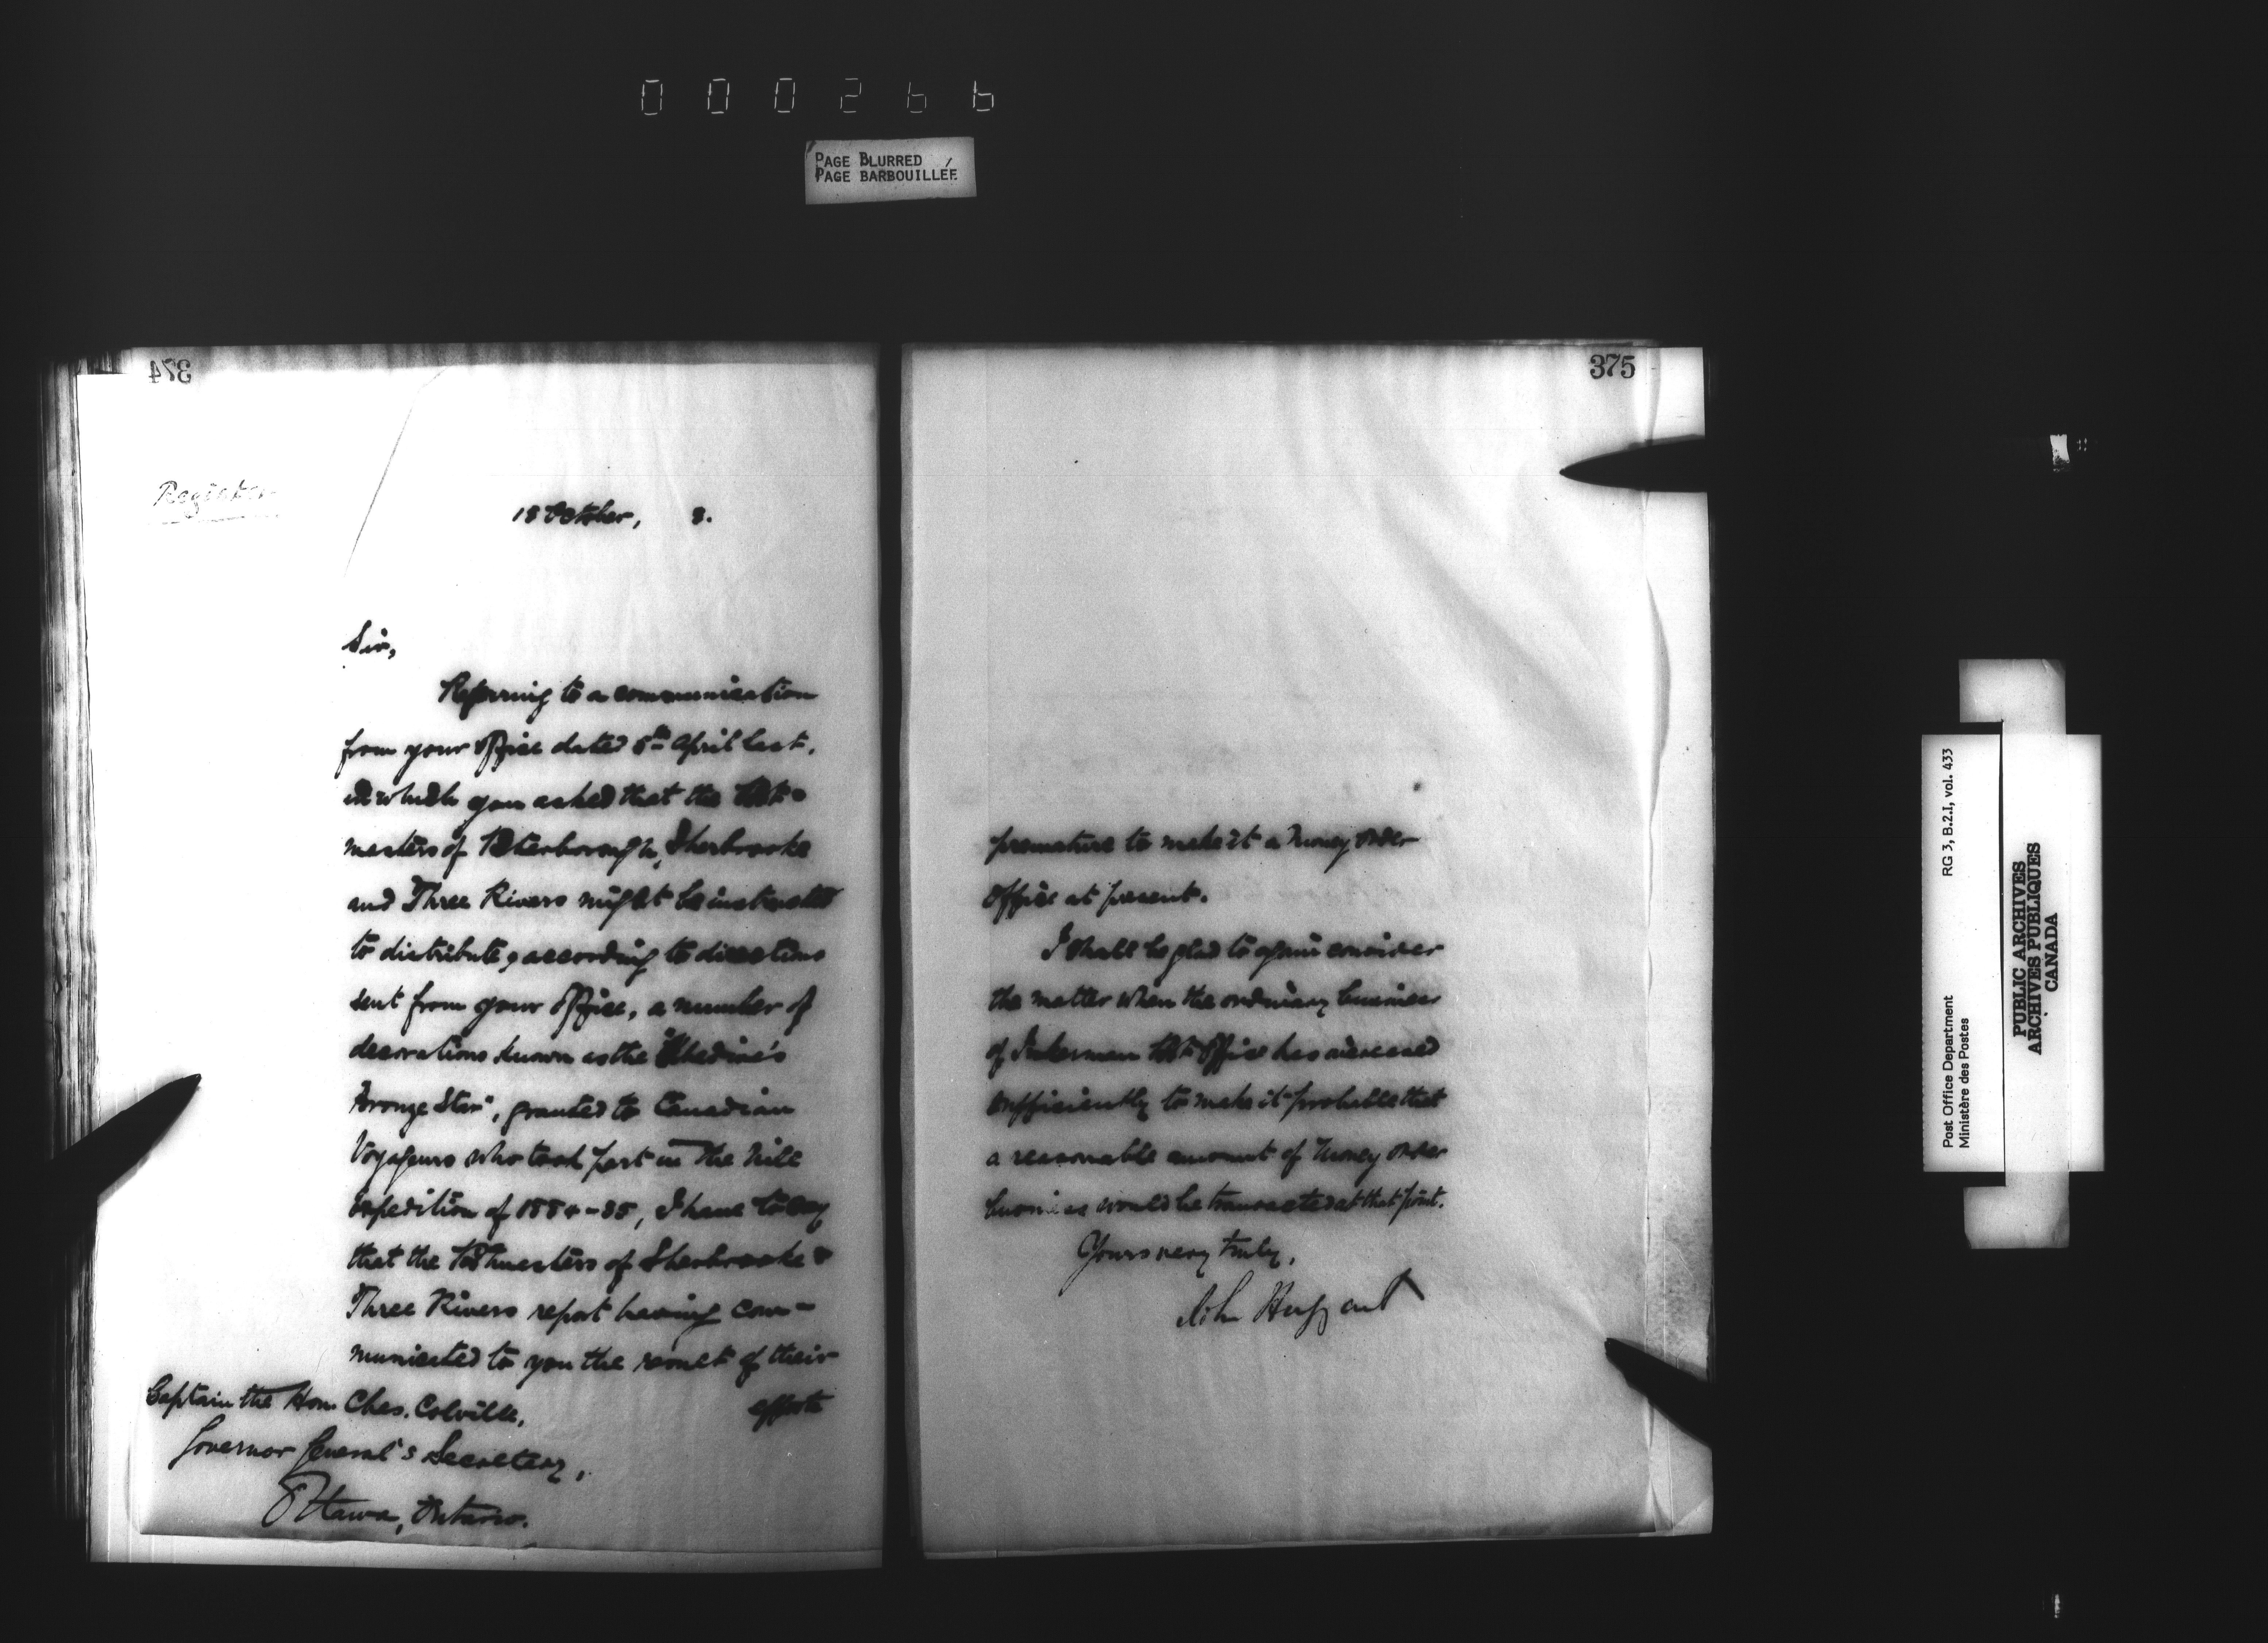 000266
PAGE BLURRED
PAGE BARBOUILLÉE
374
Register
18 October, 8.
Sir,
Referring to a communication
from your Office dated 5th April last,
in which you asked that the Post-
masters of Peterborough, Sherbrooke
and Three Rivers might be instructed
to distribute, according to directions
sent from your Office, a number of
decorations known as the "Khedive's
Bronze Star", granted to Canadian
Voyageurs who took part in the Nile
Expedition of 1884-85, I have to say
that the Postmasters of Sherbrooke &
Three Rivers report having com-
municated to you the result of their
efforts
Captain the Hon. Chas. Colville,
Governor General's Secretary,
Ottawa, Ontario.
375
premature to make it a Money Order
Office at present.
I shall be glad to again consider
the matter when the ordinary business
of Inkerman Post Office has increased
sufficiently to make it probable that
a reasonable amount of Money Order
business would be transacted at that point.
Yours very truly,
John Haggart
Post Office Department RG 3, B.2.I, vol. 433
Ministère des Postes
PUBLIC ARCHIVES
ARCHIVES PUBLIQUES
CANADA